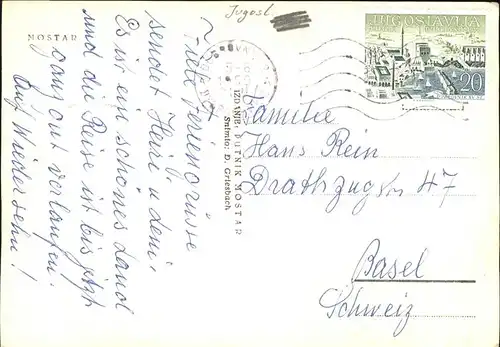 Jugosl.
MOSTAR
Liebe Feriengrüsse
sendet Heini u deini
Es ist ein schönes Land
und die Reise ist bis jetzt
ganz gut verlaufen.
Auf Wiedersehn!
IZDANJE PUTNIK MOSTAR
Snimio: D. Griesbach
JUGOSLAVIJA
20
Familie
Hans Rein
Drathzug 47
Basel
Schweiz